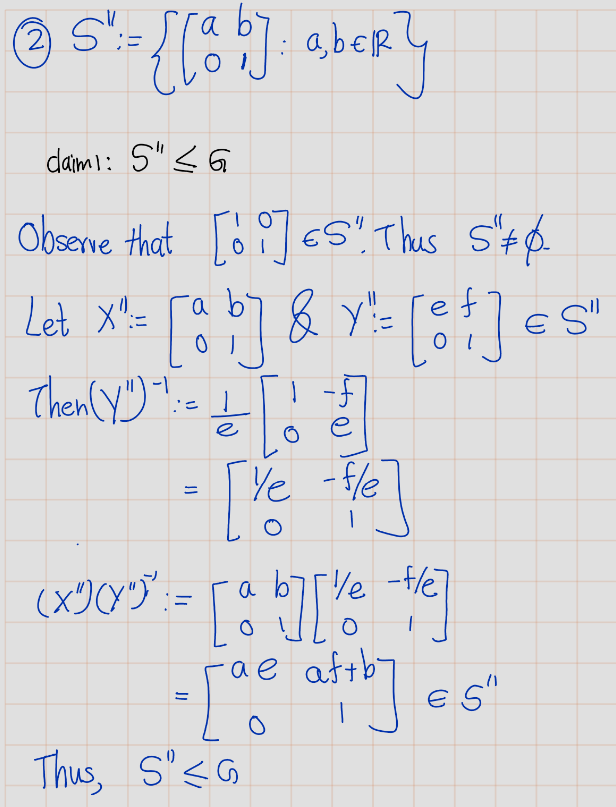 ② S'':= {[a b; 0 1] : a,b∈ℝ}
claim1: S'' ≤ G
Observe that [1 0; 0 1] ∈ S''. Thus S'' ≠ ∅.
Let X'':= [a b; 0 1] & Y'':= [e f; 0 1] ∈ S''
Then (Y'')⁻¹ := 1/e [1 -f; 0 e]
= [1/e -f/e; 0 1]
(X'')(Y'')⁻¹ := [a b; 0 1][1/e -f/e; 0 1]
= [ae af+b; 0 1] ∈ S''
Thus, S'' ≤ G